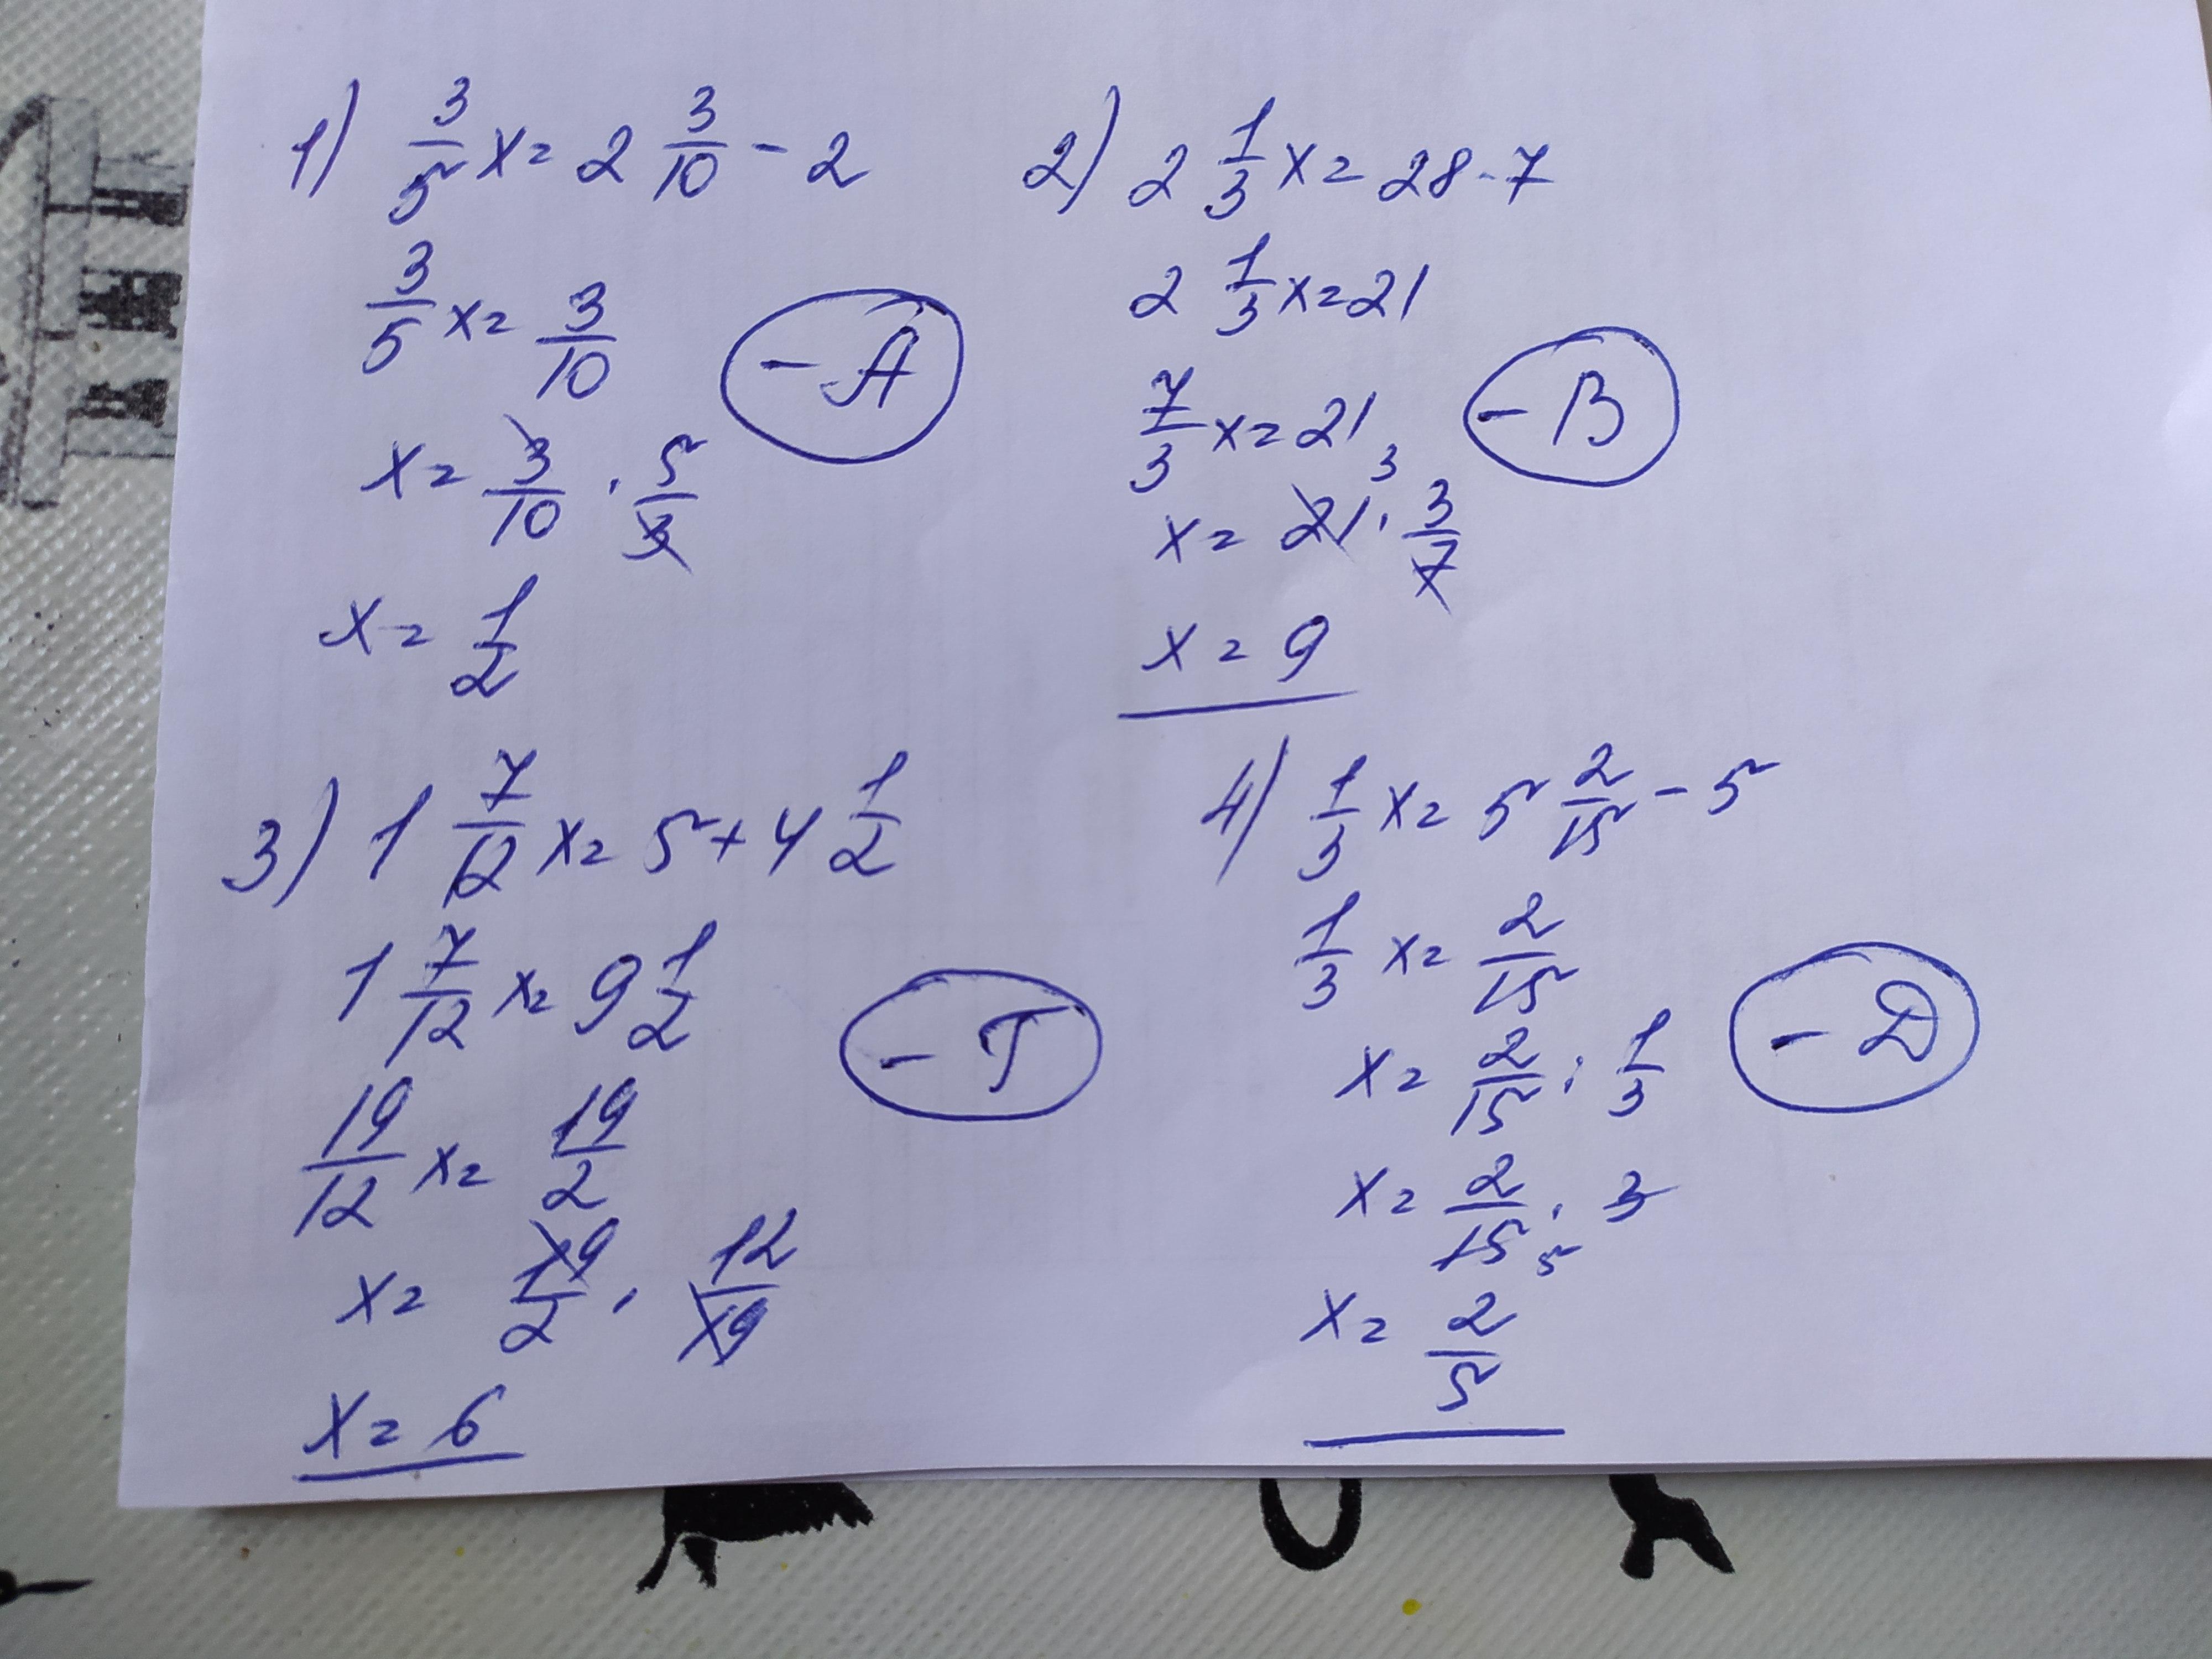 1) 3/5 x = 2 3/10 - 2
3/5 x = 3/10
- A
x = 3/10 · 5/3
x = 1/2
2) 2 1/3 x = 28 - 7
2 1/3 x = 21
7/3 x = 21
- B
x = 21 · 3/7 3
x = 9
3) 1 7/12 x = 5 + 4 1/2
1 7/12 x = 9 1/2
- T
19/12 x = 19/2
x = 19/2 · 12/19
x = 6
4) 1/3 x = 5 2/15 - 5
1/3 x = 2/15
x = 2/15 : 1/3
- D
x = 2/15 · 3 5
x = 2/5